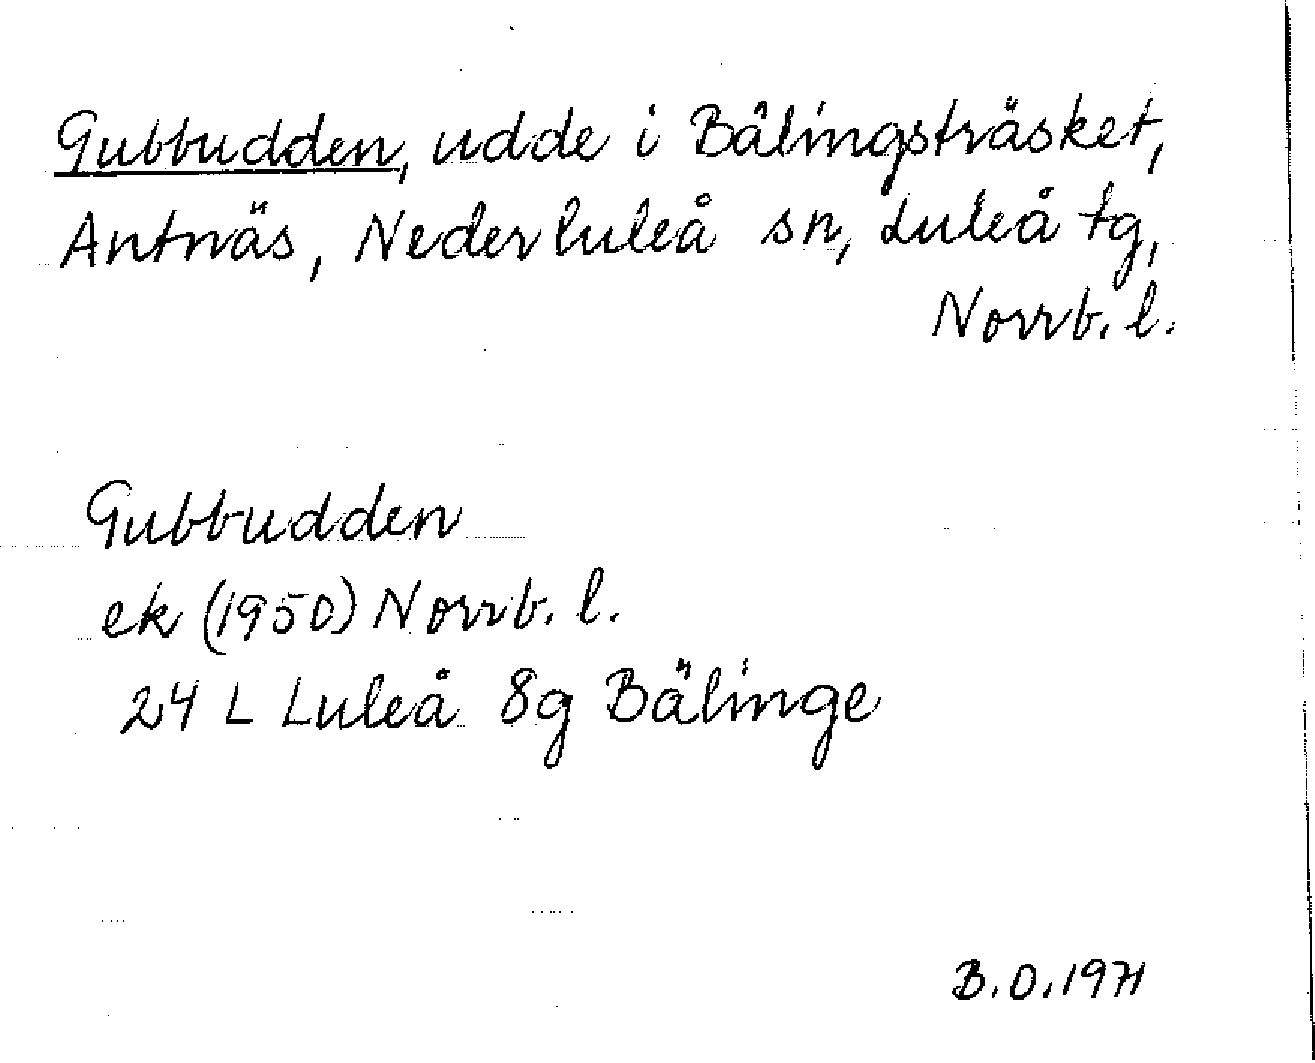 Gubbudden, udde i Bälingsträsket,
Antnäs, Nederluleå sn, Luleå tg,
Norrb. l.
Gubbudden
ek (1950) Norrb. l.
24 L Luleå 8g Bälinge
B.O. 1971